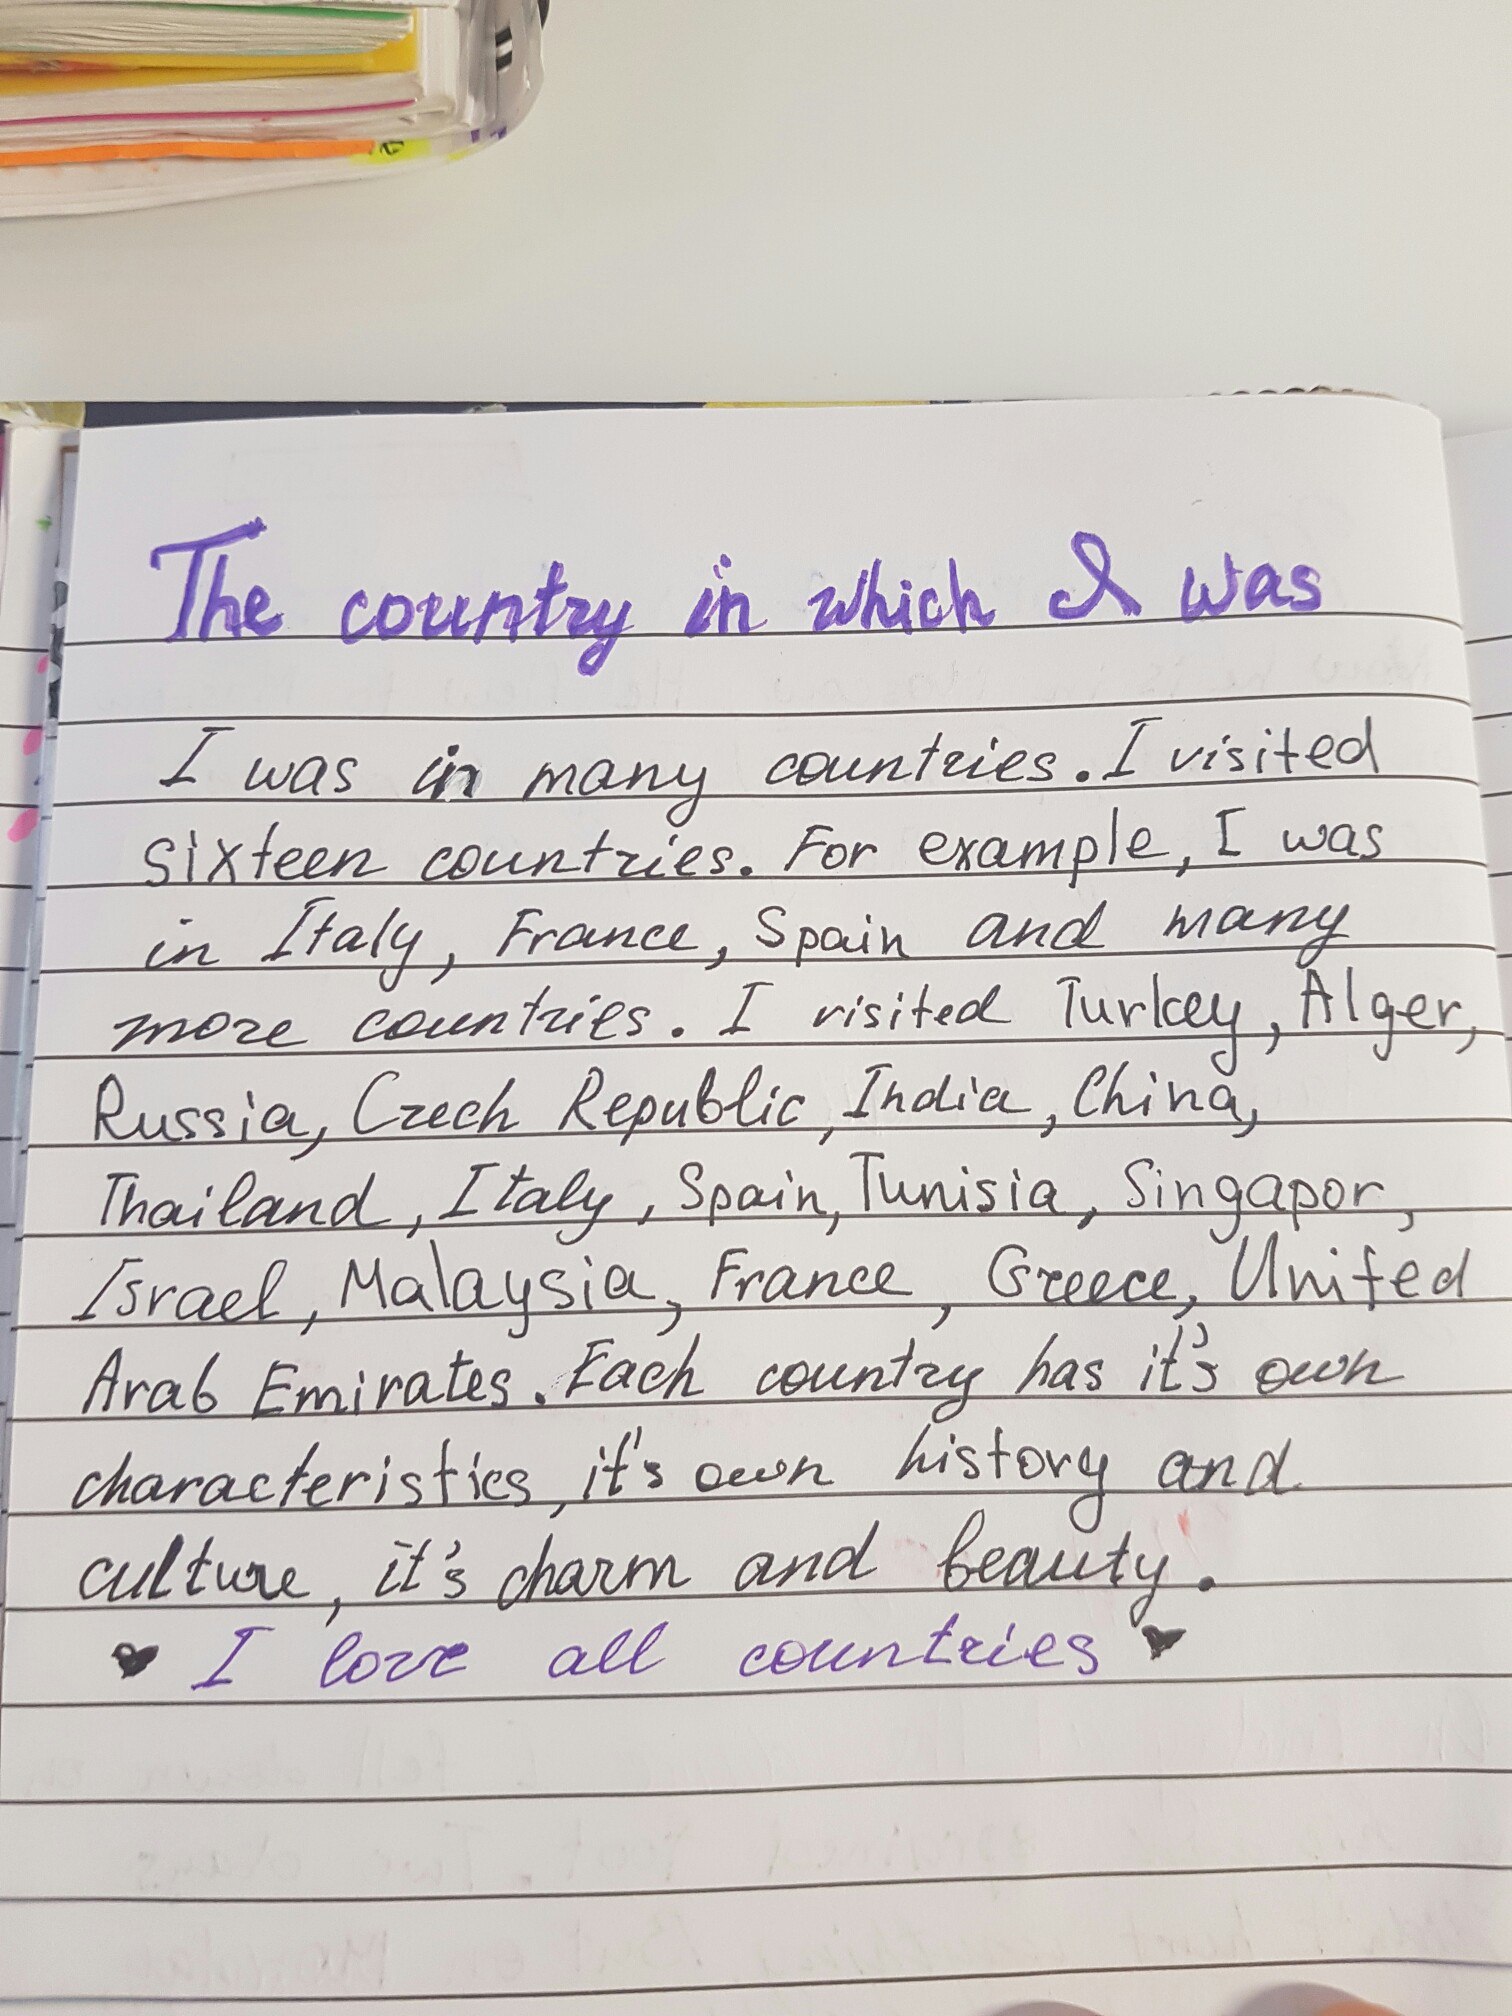 The country in which I was
I was in many countries. I visited
sixteen countries. For example, I was
in Italy, France, Spain and many
more countries. I visited Turkey, Alger,
Russia, Czech Republic, India, China,
Thailand, Italy, Spain, Tunisia, Singapor,
Israel, Malaysia, France, Greece, United
Arab Emirates. Each country has it's own
characteristics, it's own history and
culture, it's charm and beauty.
♥ I love all countries ♥